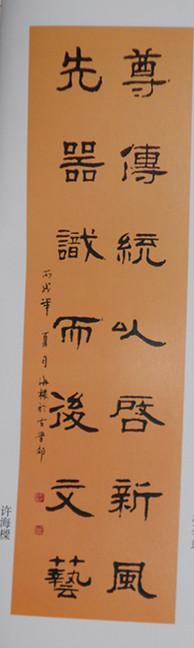 尊傳統以啓新風
先器識而後文藝
丙戌年夏月海樑於古晋邻
许海樑